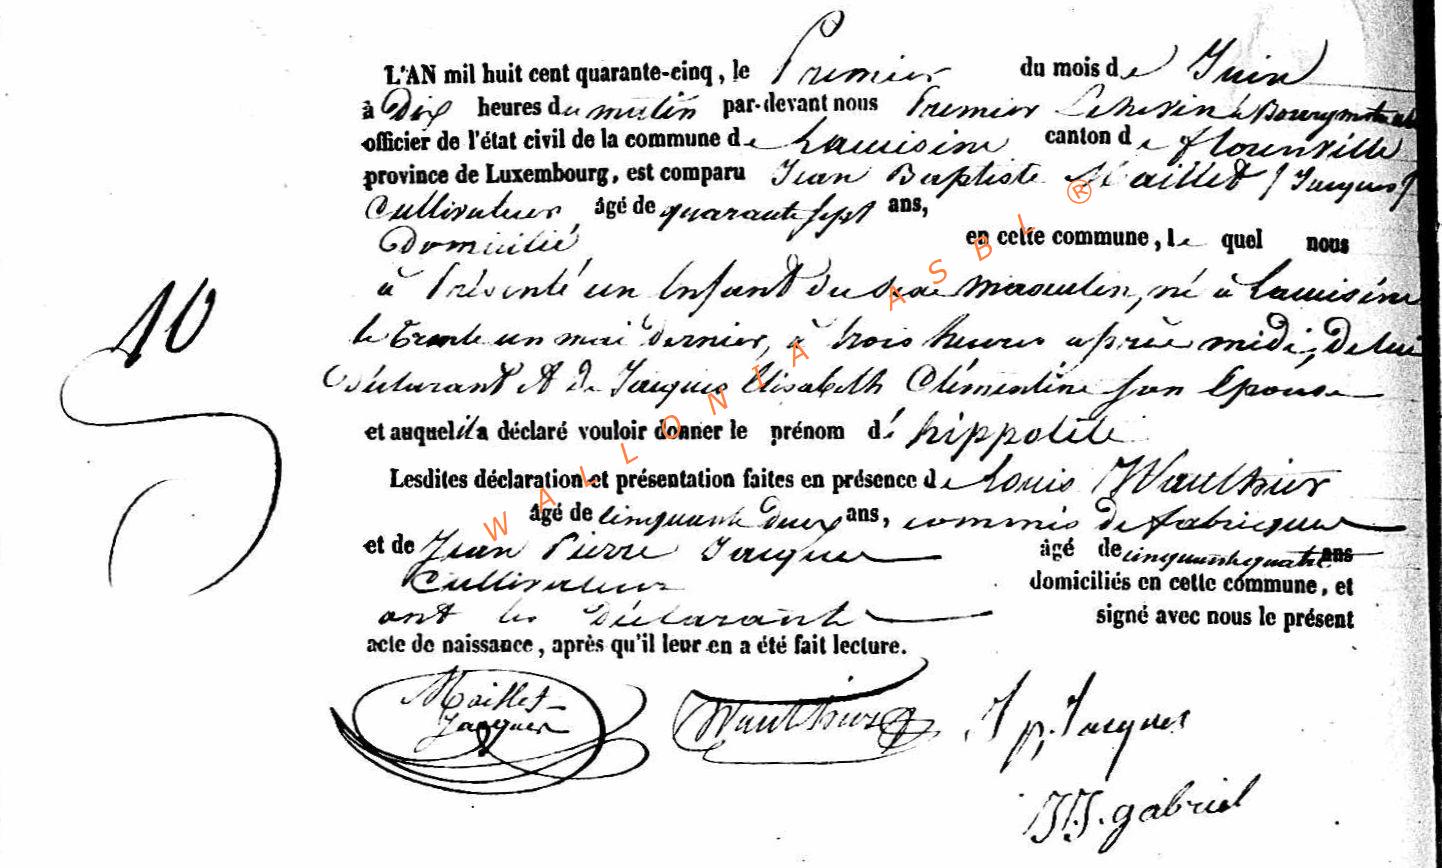 L'AN mil huit cent quarante-cinq, le Premier du mois de Juin
à Dix heures du matin par-devant nous Premier Echevin
officier de l'état civil de la commune de Lacuisine canton de florenville
province de Luxembourg, est comparu Jean Baptiste Maillet / Jacques /
Cultivateur, âgé de quarante sept ans,
Domicilié en cette commune, le quel nous
à Présenté un Enfant du Sexe masculin, né à Lacuisine
le trente un mai dernier, à trois heures après midi, de lui
Déclarant Et de Jacques Elisabeth Clémentine son Epouse
et auquel il a déclaré vouloir donner le prénom d' hippolite
Lesdites déclaration et présentation faites en présence de Louis Wauthier
âgé de cinquante deux ans, commis de fabrique
et de Jean Pierre Jacques âgé de cinquante quatre ans
Cultivateur domiciliés en cette commune, et
ont les Déclarants signé avec nous le présent
acte de naissance, après qu'il leur en a été fait lecture.
10
Maillet
Jacques
Wauthier
J p. Jacques
JJ. gabriel
WALLONIA ASBL ®